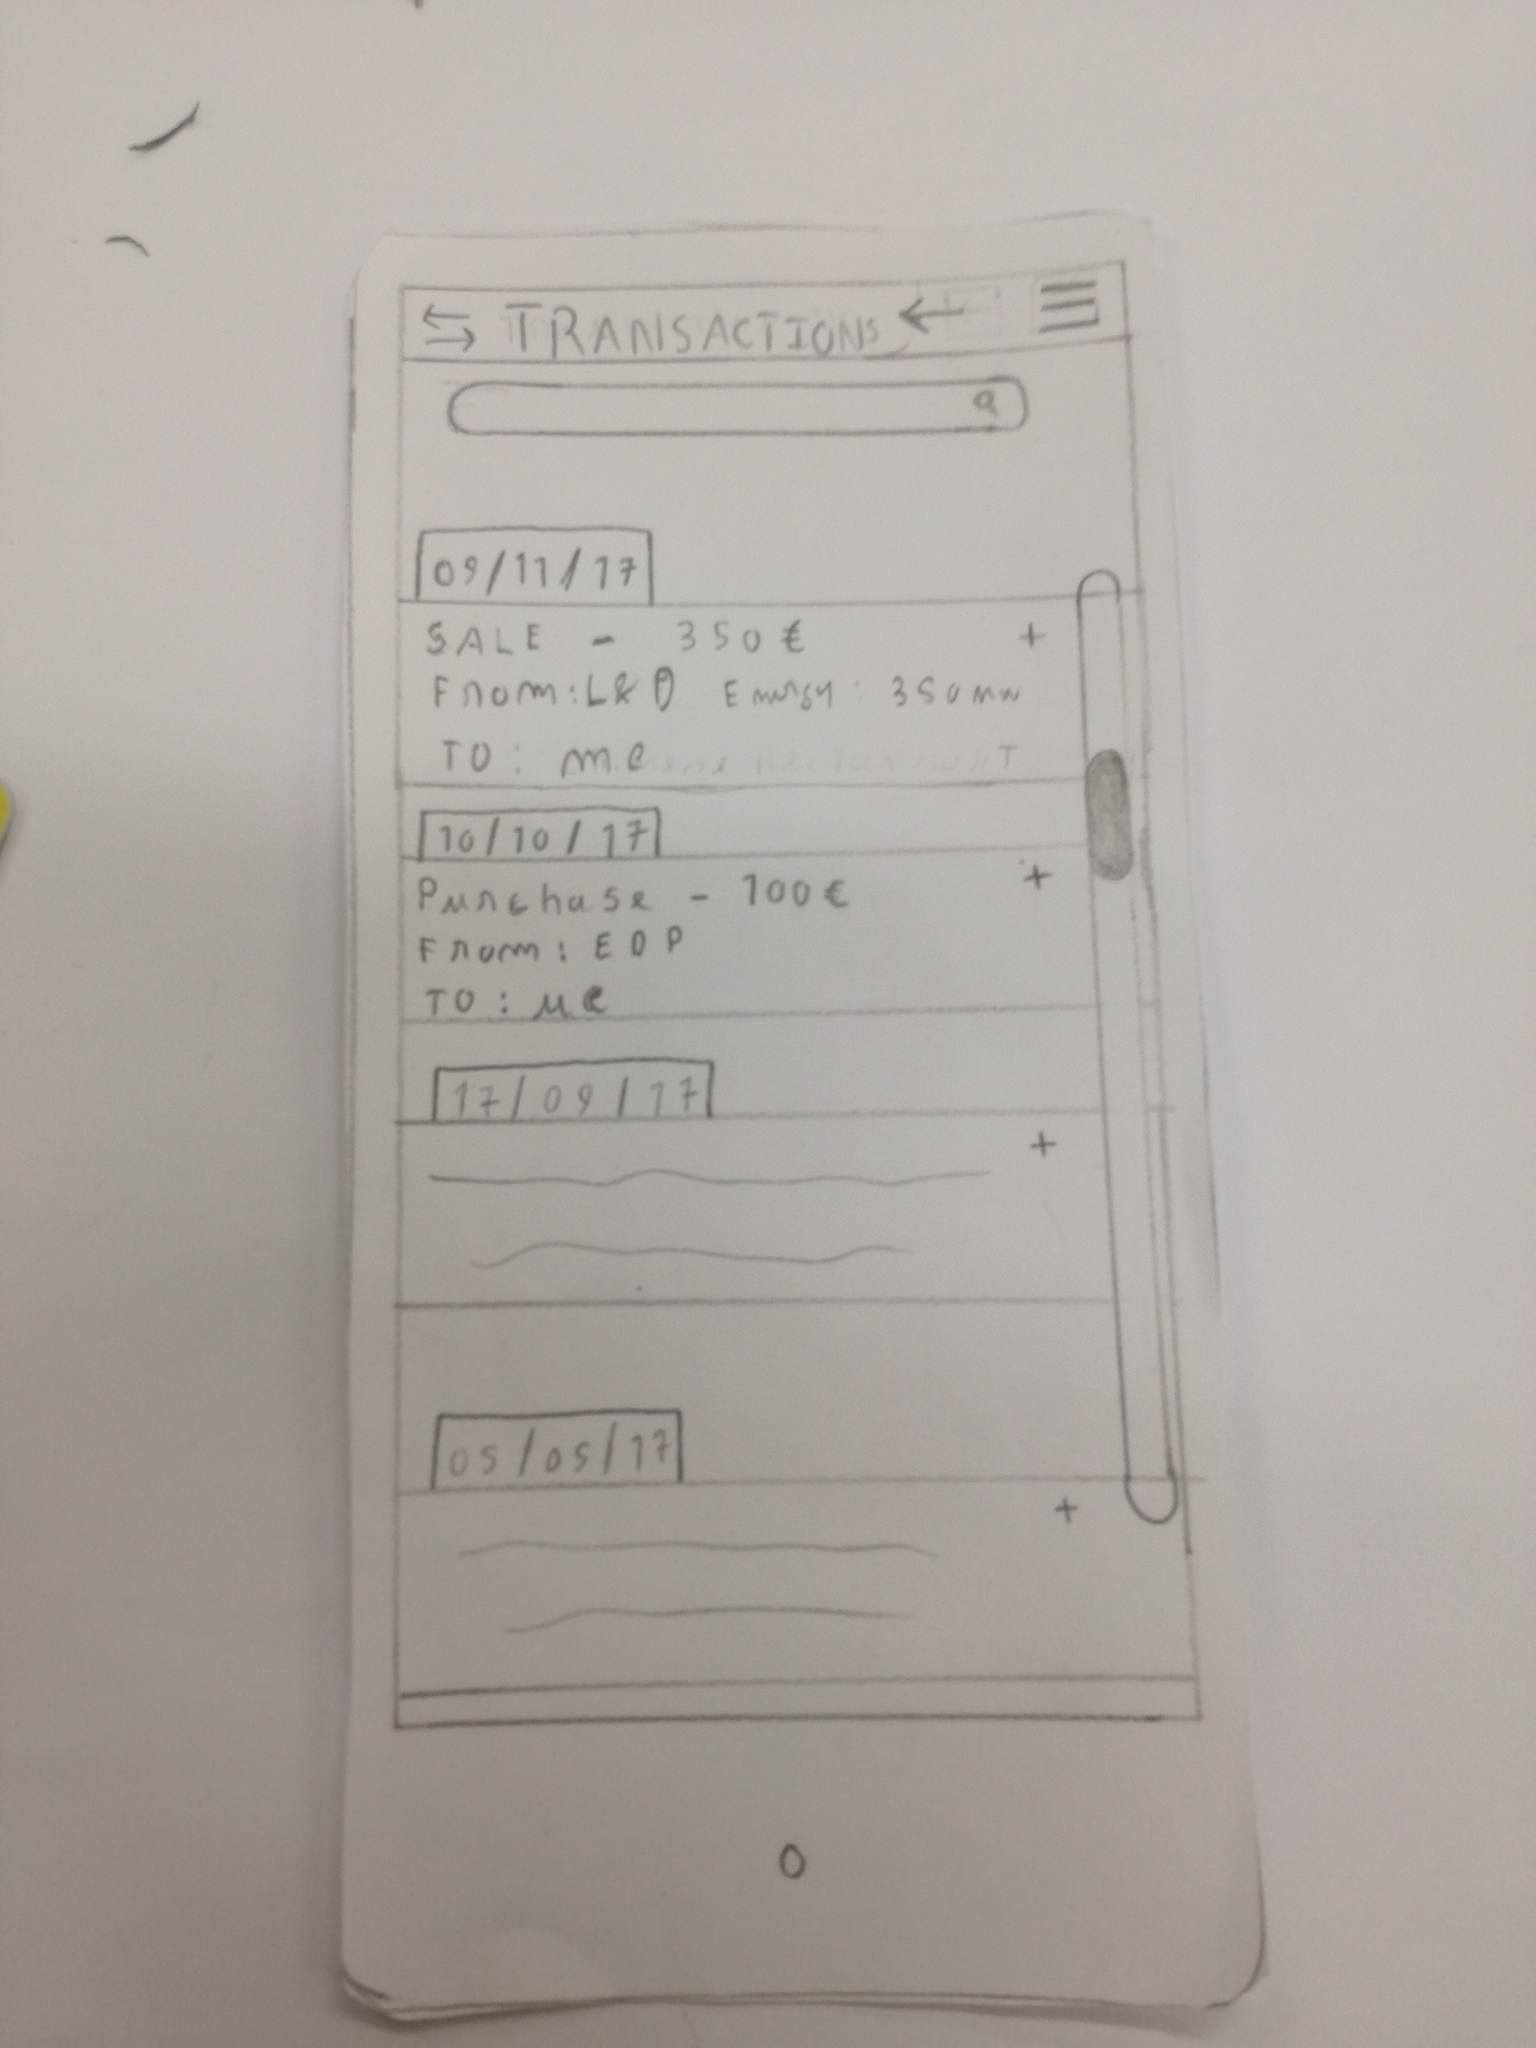 TRANSACTIONS
09/11/17
SALE - 350€ +
From: L&D Energy: 350mw
TO: me
10/10/17
Purchase - 100€ +
From: EDP
TO: me
17/09/17
+
05/05/17
+